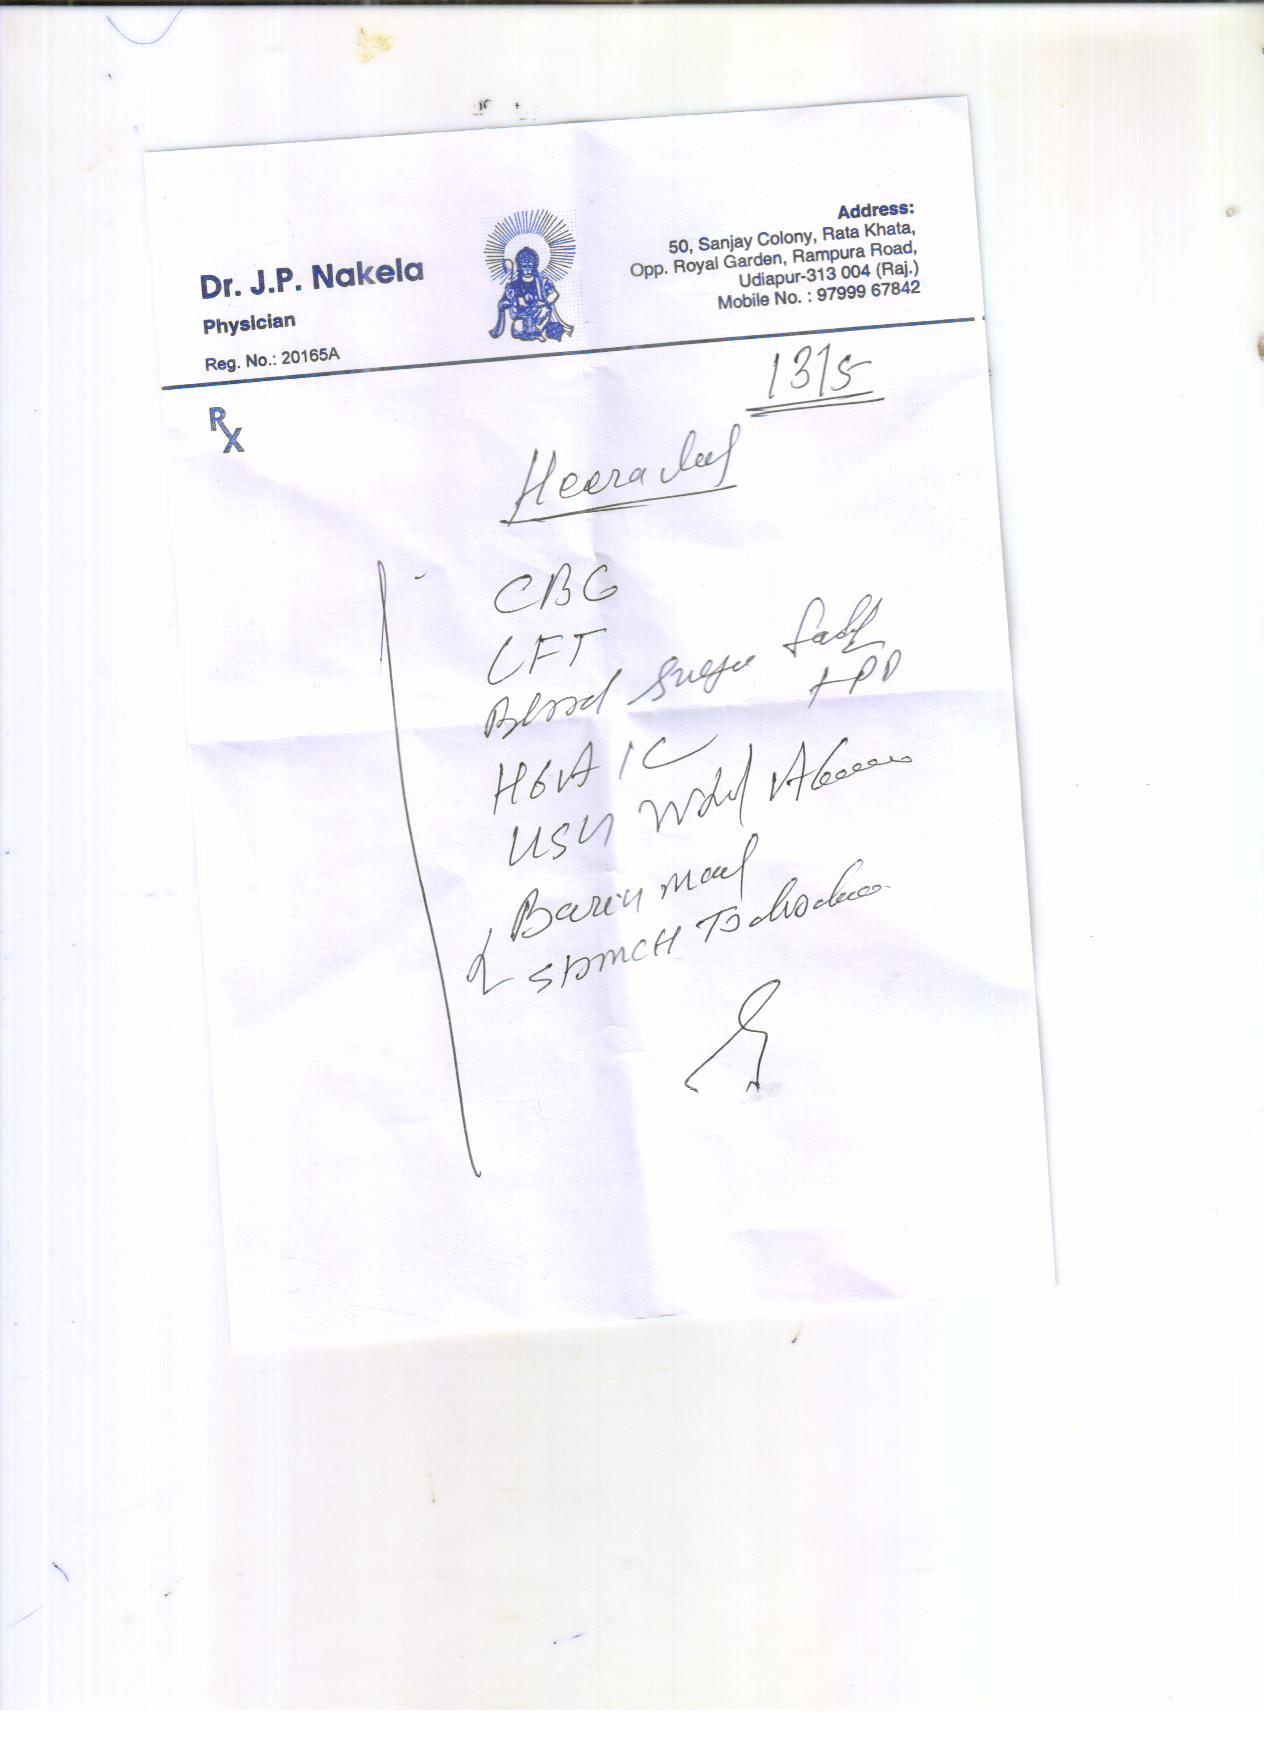 Dr. J.P. Nakela
Physician
Reg. No.: 20165A
Address:
50, Sanjay Colony, Rata Khata,
Opp. Royal Garden, Rampura Road,
Udiapur-313 004 (Raj.)
Mobile No. : 97999 67842
Rx
13/5
Heeralal
CBC
LFT
Blood Sugar
+ PP
HbA1C
USG Abdomen
Barium meal